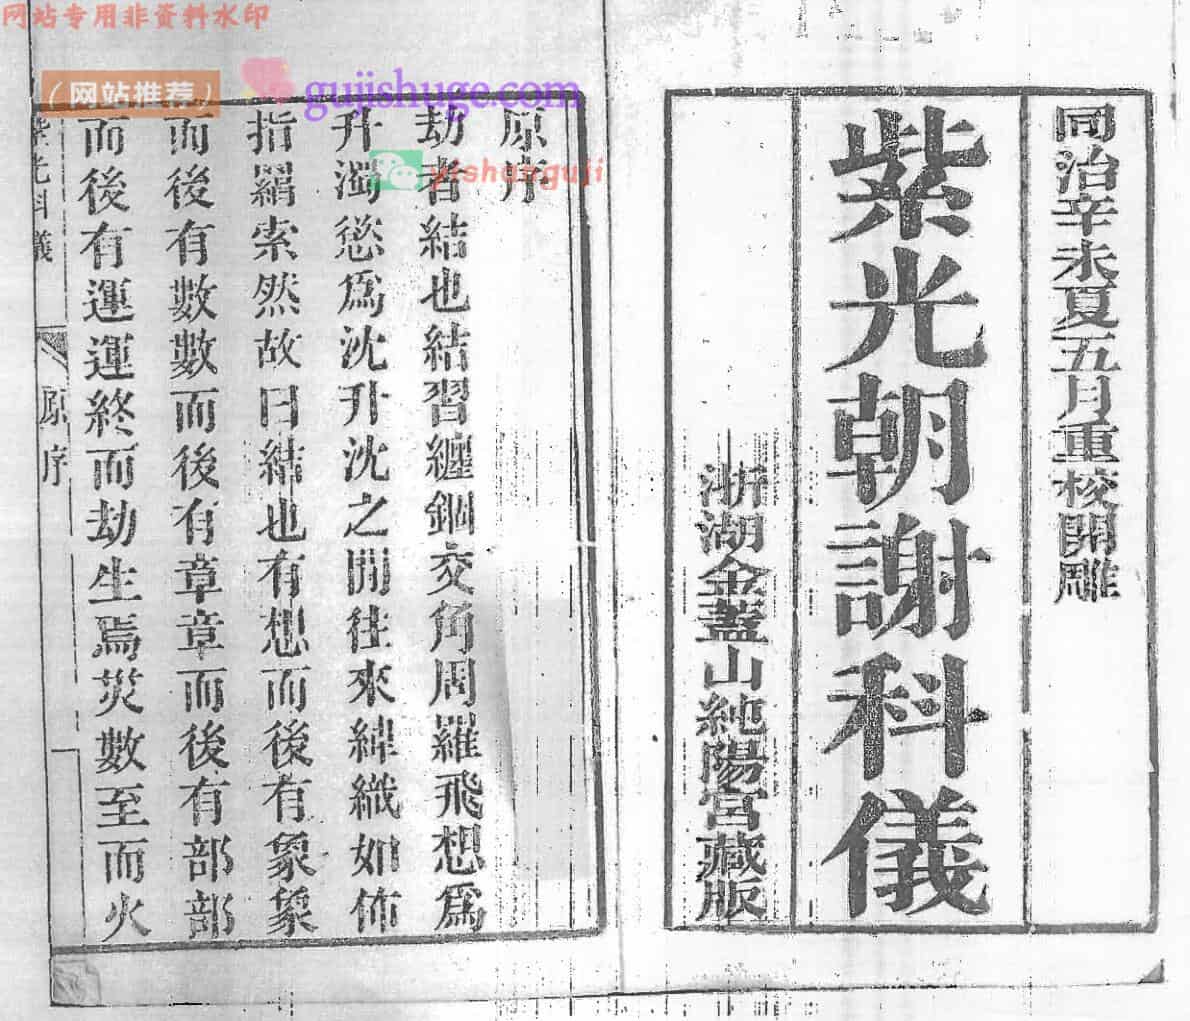 网站专用非资料水印
（网站推荐）
gujishuge.com
yishanguji
同治辛未夏五月重校開雕
紫光朝謝科儀
浙湖金蓋山純陽宮藏版
原序
劫者結也結習纏錮交角周羅飛想爲
升濁慾爲沈升沈之閒往來緯織如佈
指羂索然故曰結也有想而後有象象
而後有數數而後有章章而後有部部
而後有運運終而劫生焉災數至而火
紫光科儀
原序